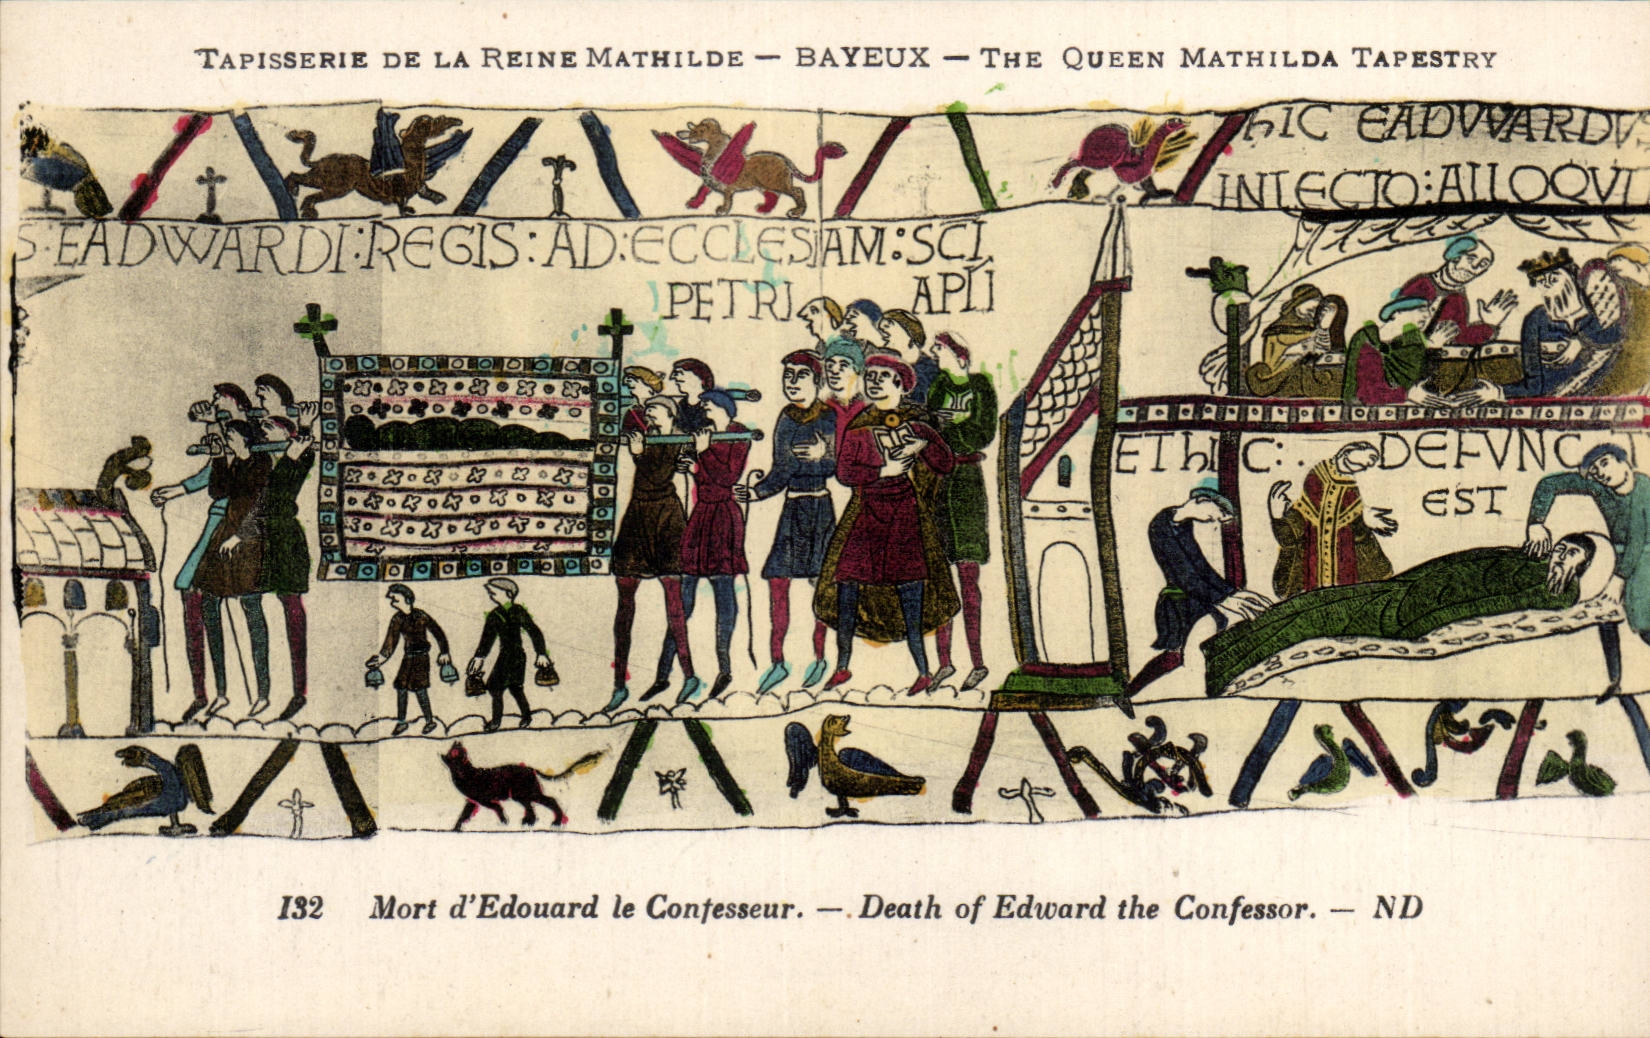 TAPISSERIE DE LA REINE MATHILDE — BAYEUX — THE QUEEN MATHILDA TAPESTRY
hIC EADVVARDV
INLECTO:ALLOQVI
S:EADWARDI:REGIS:AD:ECCLESIAM:SCI
PETRI APLI
ET hIC: DEFVNC
EST
132 Mort d'Edouard le Confesseur. — Death of Edward the Confessor. — ND